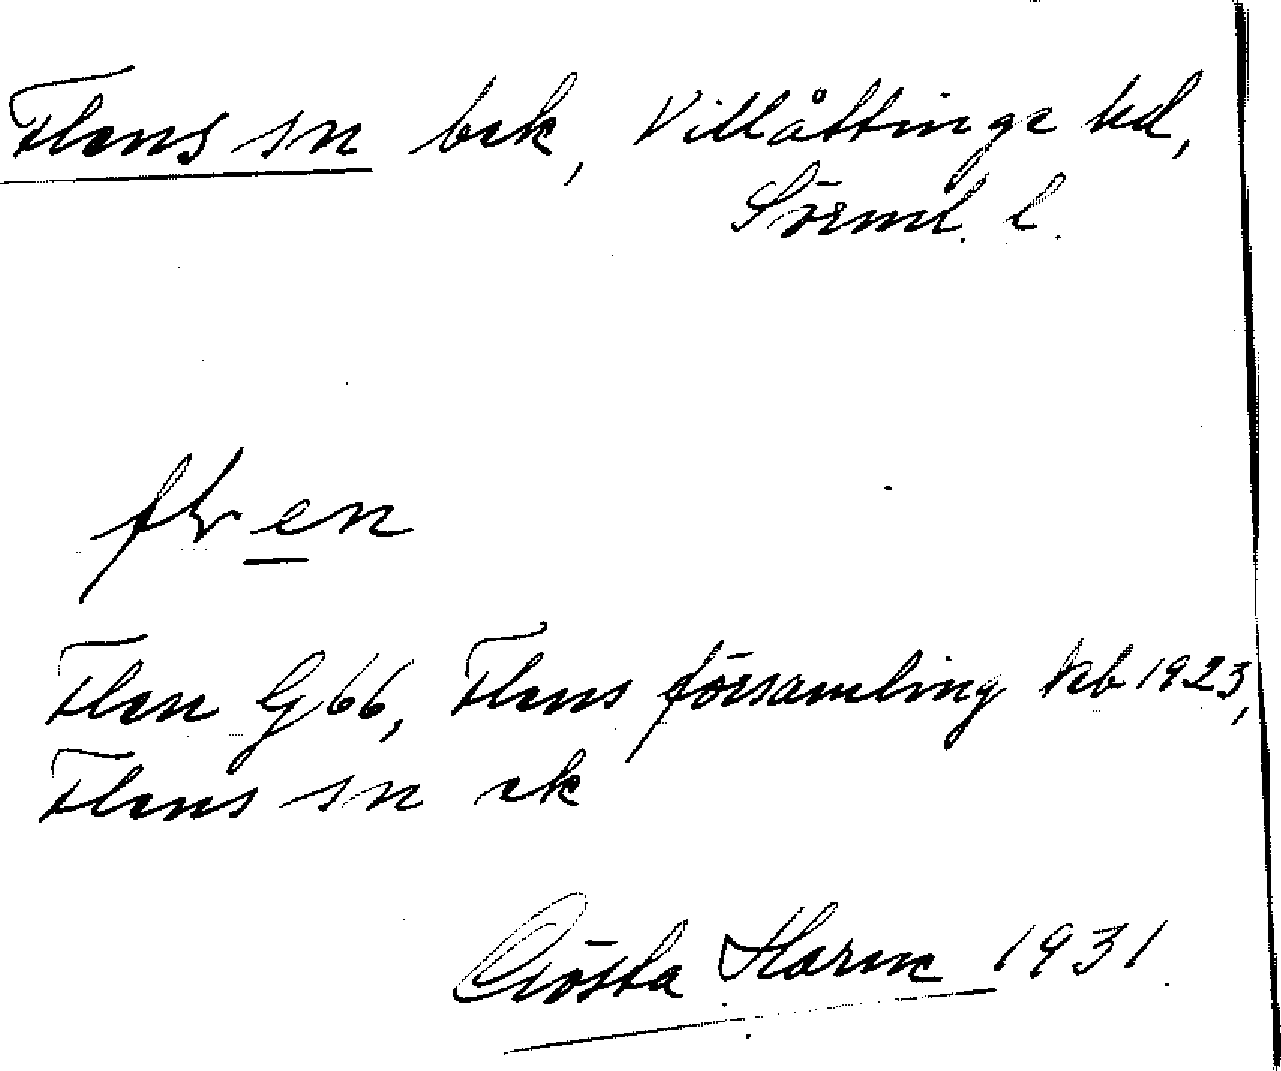 Flens sn bek, Villåttinge hd,
Sörml. l.
flen
Flen G 66, Flens församling kb 1923,
Flens sn ek
Gösta Harm 1931